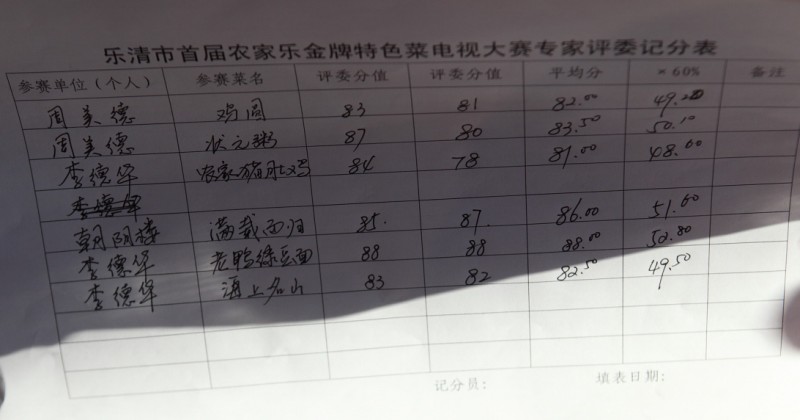 乐清市首届农家乐金牌特色菜电视大赛专家评委记分表
参赛单位（个人） 参赛菜名 评委分值 评委分值 平均分 ×60% 备注
周美德 鸡圆 83 81 82.00 49.20
周美德 状元粥 87 80 83.50 50.10
李德华 农家猪肚鸡 84 78 81.00 48.60
李德华
朝阴楼 满载而归 85. 87. 86.00 51.60
李德华 老鸭绿豆面 88 88 88.00 52.80
李德华 海上名山 83 82 82.50 49.50
记分员： 填表日期：